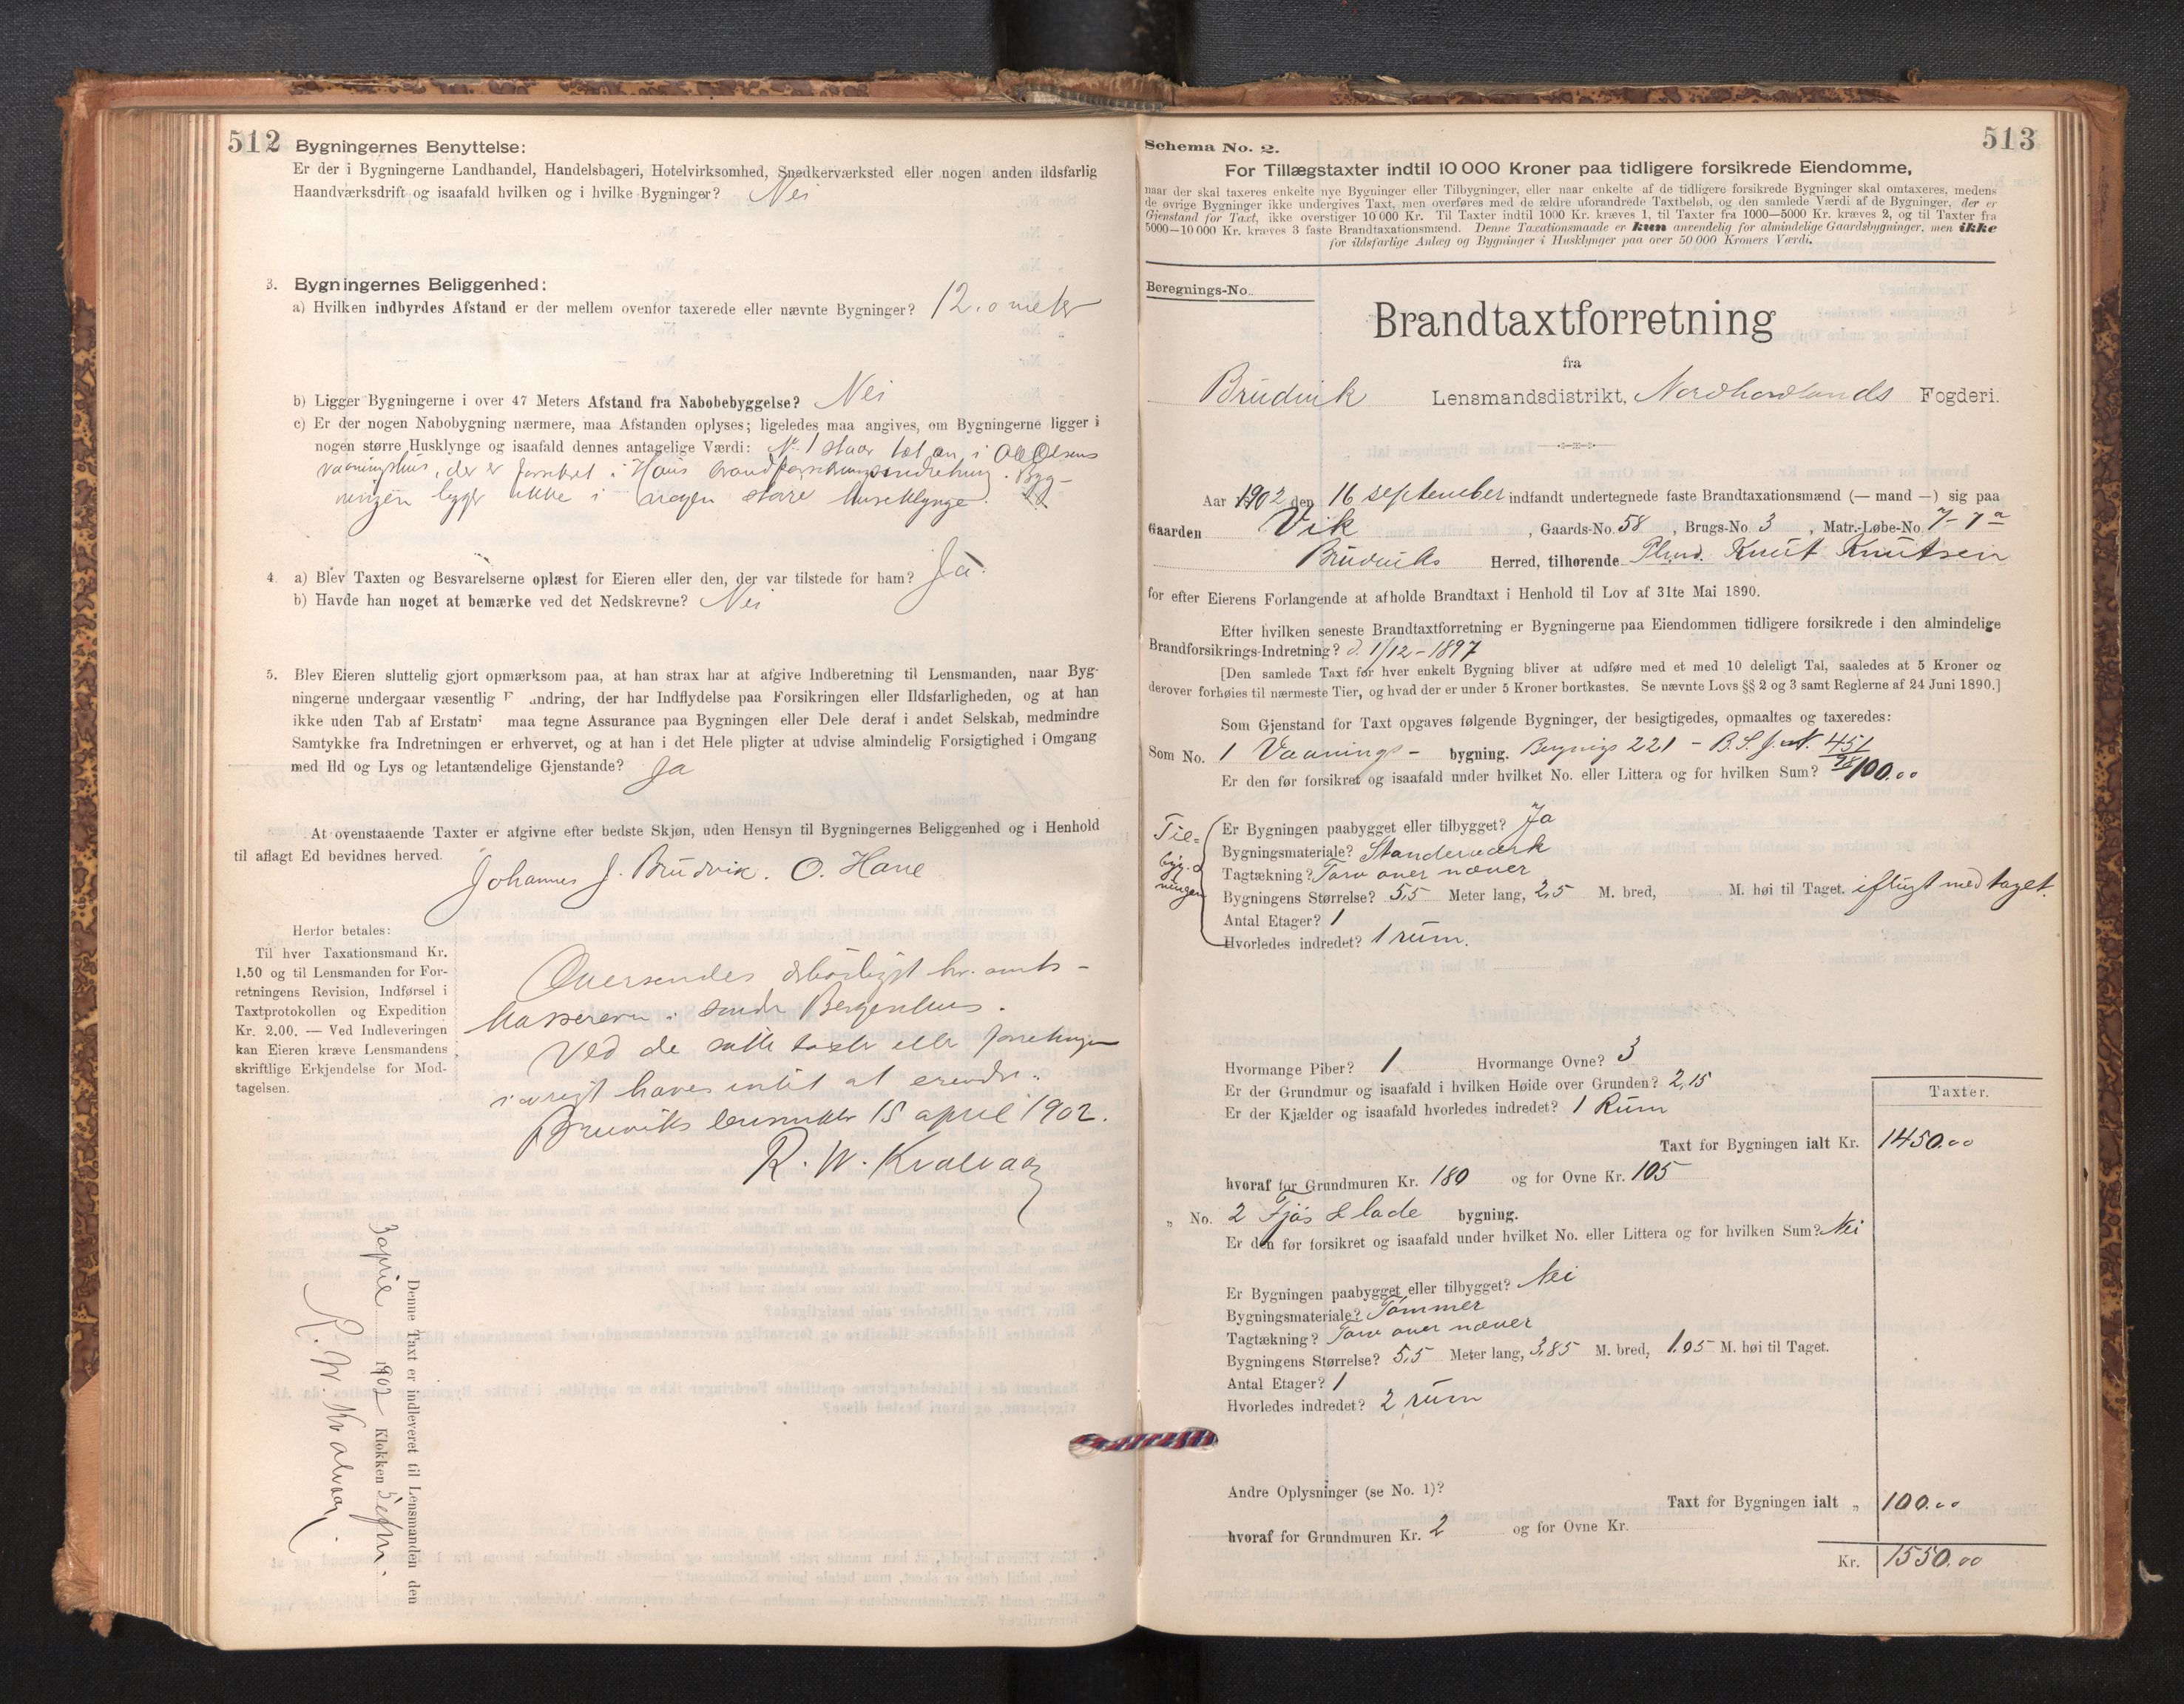 512 Bygningernes Benyttelse:
Er der i Bygningerne Landhandel, Handelsbageri, Hotelvirksomhed, Snedkerværksted eller nogen anden ildsfarlig
Haandværksdrift og isaafald hvilken og i hvilke Bygninger? Nei
3. Bygningernes Beliggenhed:
a) Hvilken indbyrdes Afstand er der mellem ovenfor taxerede eller nævnte Bygninger? 12.0 meter
b) Ligger Bygningerne i over 47 Meters Afstand fra Nabobebyggelse? Nei
c) Er der nogen Nabobygning nærmere, maa Afstanden oplyses; ligeledes maa angives, om Bygningerne ligger i
nogen større Husklynge og isaafald dennes antagelige Værdi: No 1 staar tæt an i Ole Olsens
vaaningshus, der er forsikret i Haus brandforsikringsindretning. Byg-
ningen ligger ikke i nogen større huseklynge.
4. a) Blev Taxten og Besvarelserne oplæst for Eieren eller den, der var tilstede for ham? Ja.
b) Havde han noget at bemærke ved det Nedskrevne? Nei
5. Blev Eieren sluttelig gjort opmærksom paa, at han strax har at afgive Indberetning til Lensmanden, naar Byg-
ningerne undergaar væsentlig F andring, der har Indflydelse paa Forsikringen eller Ildsfarligheden, og at han
ikke uden Tab af Erstatni maa tegne Assurance paa Bygningen eller Dele deraf i andet Selskab, medmindre
Samtykke fra Indretningen er erhvervet, og at han i det Hele pligter at udvise almindelig Forsigtighed i Omgang
med Ild og Lys og letantændelige Gjenstande? Ja
At ovenstaaende Taxter er afgivne efter bedste Skjøn, uden Hensyn til Bygningernes Beliggenhed og i Henhold
til aflagt Ed bevidnes herved.
Johannes J. Brudvik. O. Hane
Herfor betales:
Til hver Taxationsmand Kr.
1.50 og til Lensmanden for For-
retningens Revision, Indførsel i
Taxtprotokollen og Expedition
Kr. 2.00. — Ved Indleveringen
kan Eieren kræve Lensmandens
skriftlige Erkjendelse for Mod-
tagelsen.
Oversendes ærbødigst hr. amts-
kassereren i søndre Bergenhus.
Ved de satte taxter eller forretningen
iøvrigt haves intet at erindre.
Bruviks lensmdktr 15 april 1902.
R. W. Kvalvaag
Denne Taxt er indleveret til Lensmanden den
3 april 1902 Klokken 5 eftm.
R. W. Kvalvaag.
Schema No. 2. 513
For Tillægstaxter indtil 10 000 Kroner paa tidligere forsikrede Eiendomme,
naar der skal taxeres enkelte nye Bygninger eller Tilbygninger, eller naar enkelte af de tidligere forsikrede Bygninger skal omtaxeres, medens
de øvrige Bygninger ikke undergives Taxt, men overføres med de ældre uforandrede Taxtbeløb, og den samlede Værdi af de Bygninger, der er
Gjenstand for Taxt, ikke overstiger 10 000 Kr. Til Taxter indtil 1000 Kr. kræves 1, til Taxter fra 1000—5000 Kr. kræves 2, og til Taxter fra
5000—10 000 Kr. kræves 3 faste Brandtaxationsmænd. Denne Taxationsmaade er kun anvendelig for almindelige Gaardsbygninger, men ikke
for ildsfarlige Anlæg og Bygninger i Husklynger paa over 50 000 Kroners Værdi.
Beregnings-No.
Brandtaxtforretning
fra
Brudvik Lensmandsdistrikt, Nordhordlands Fogderi.
Aar 1902 den 16 september indfandt undertegnede faste Brandtaxationsmænd (— mand —) sig paa
Gaarden Vik, Gaards-No. 58, Brugs-No 3, Matr.-Løbe-No. 7-7a
Brudviks Herred, tilhørende Plmd. Knut Knutsen
for efter Eierens Forlangende at afholde Brandtaxt i Henhold til Lov af 31te Mai 1890.
Efter hvilken seneste Brandtaxtforretning er Bygningerne paa Eiendommen tidligere forsikrede i den almindelige
Brandforsikrings-Indretning? d. 1/12-1897
[Den samlede Taxt for hver enkelt Bygning bliver at udføre med et med 10 deleligt Tal, saaledes at 5 Kroner og
derover forhøies til nærmeste Tier, og hvad der er under 5 Kroner bortkastes. Se nævnte Lovs §§ 2 og 3 samt Reglerne af 24 Juni 1890.]
Som Gjenstand for Taxt opgaves følgende Bygninger, der besigtigedes, opmaaltes og taxeredes:
Som No. 1 Vaanings- bygning. Bergnigs 221 - B.S.J. N. 451/98
Er den før forsikret og isaafald under hvilket No. eller Littera og for hvilken Sum? 100.00
Til-
byg-
ningen
Er Bygningen paabygget eller tilbygget? Ja
Bygningsmateriale? Standerværk
Tagtækning? Torv over næver
Bygningens Størrelse? 5,5 Meter lang, 2,5 M. bred, M. høi til Taget. iflugt med taget.
Antal Etager? 1
Hvorledes indredet? 1 rum.
Hvormange Piber? 1 Hvormange Ovne? 3
Er der Grundmur og isaafald i hvilken Høide over Grunden? 2,15
Er der Kjælder og isaafald hvorledes indredet? 1 Rum
Taxter.
Taxt for Bygningen ialt Kr. 1450.00
hvoraf for Grundmuren Kr. 180 og for Ovne Kr. 105
„ No. 2 Fjøs & lade bygning.
Er den før forsikret og isaafald under hvilket No. eller Littera og for hvilken Sum? Nei
Er Bygningen paabygget eller tilbygget? Nei
Bygningsmateriale? Tømmer
Tagtækning? Torv over næver
Bygningens Størrelse? 5,5 Meter lang, 3,85 M. bred, 1.95 M. høi til Taget.
Antal Etager? 1
Hvorledes indredet? 2 rum
Andre Oplysninger (se No. 1)?
Taxt for Bygningen ialt „ 100.00
hvoraf for Grundmuren Kr. 2 og for Ovne Kr.
Kr. 1550.00